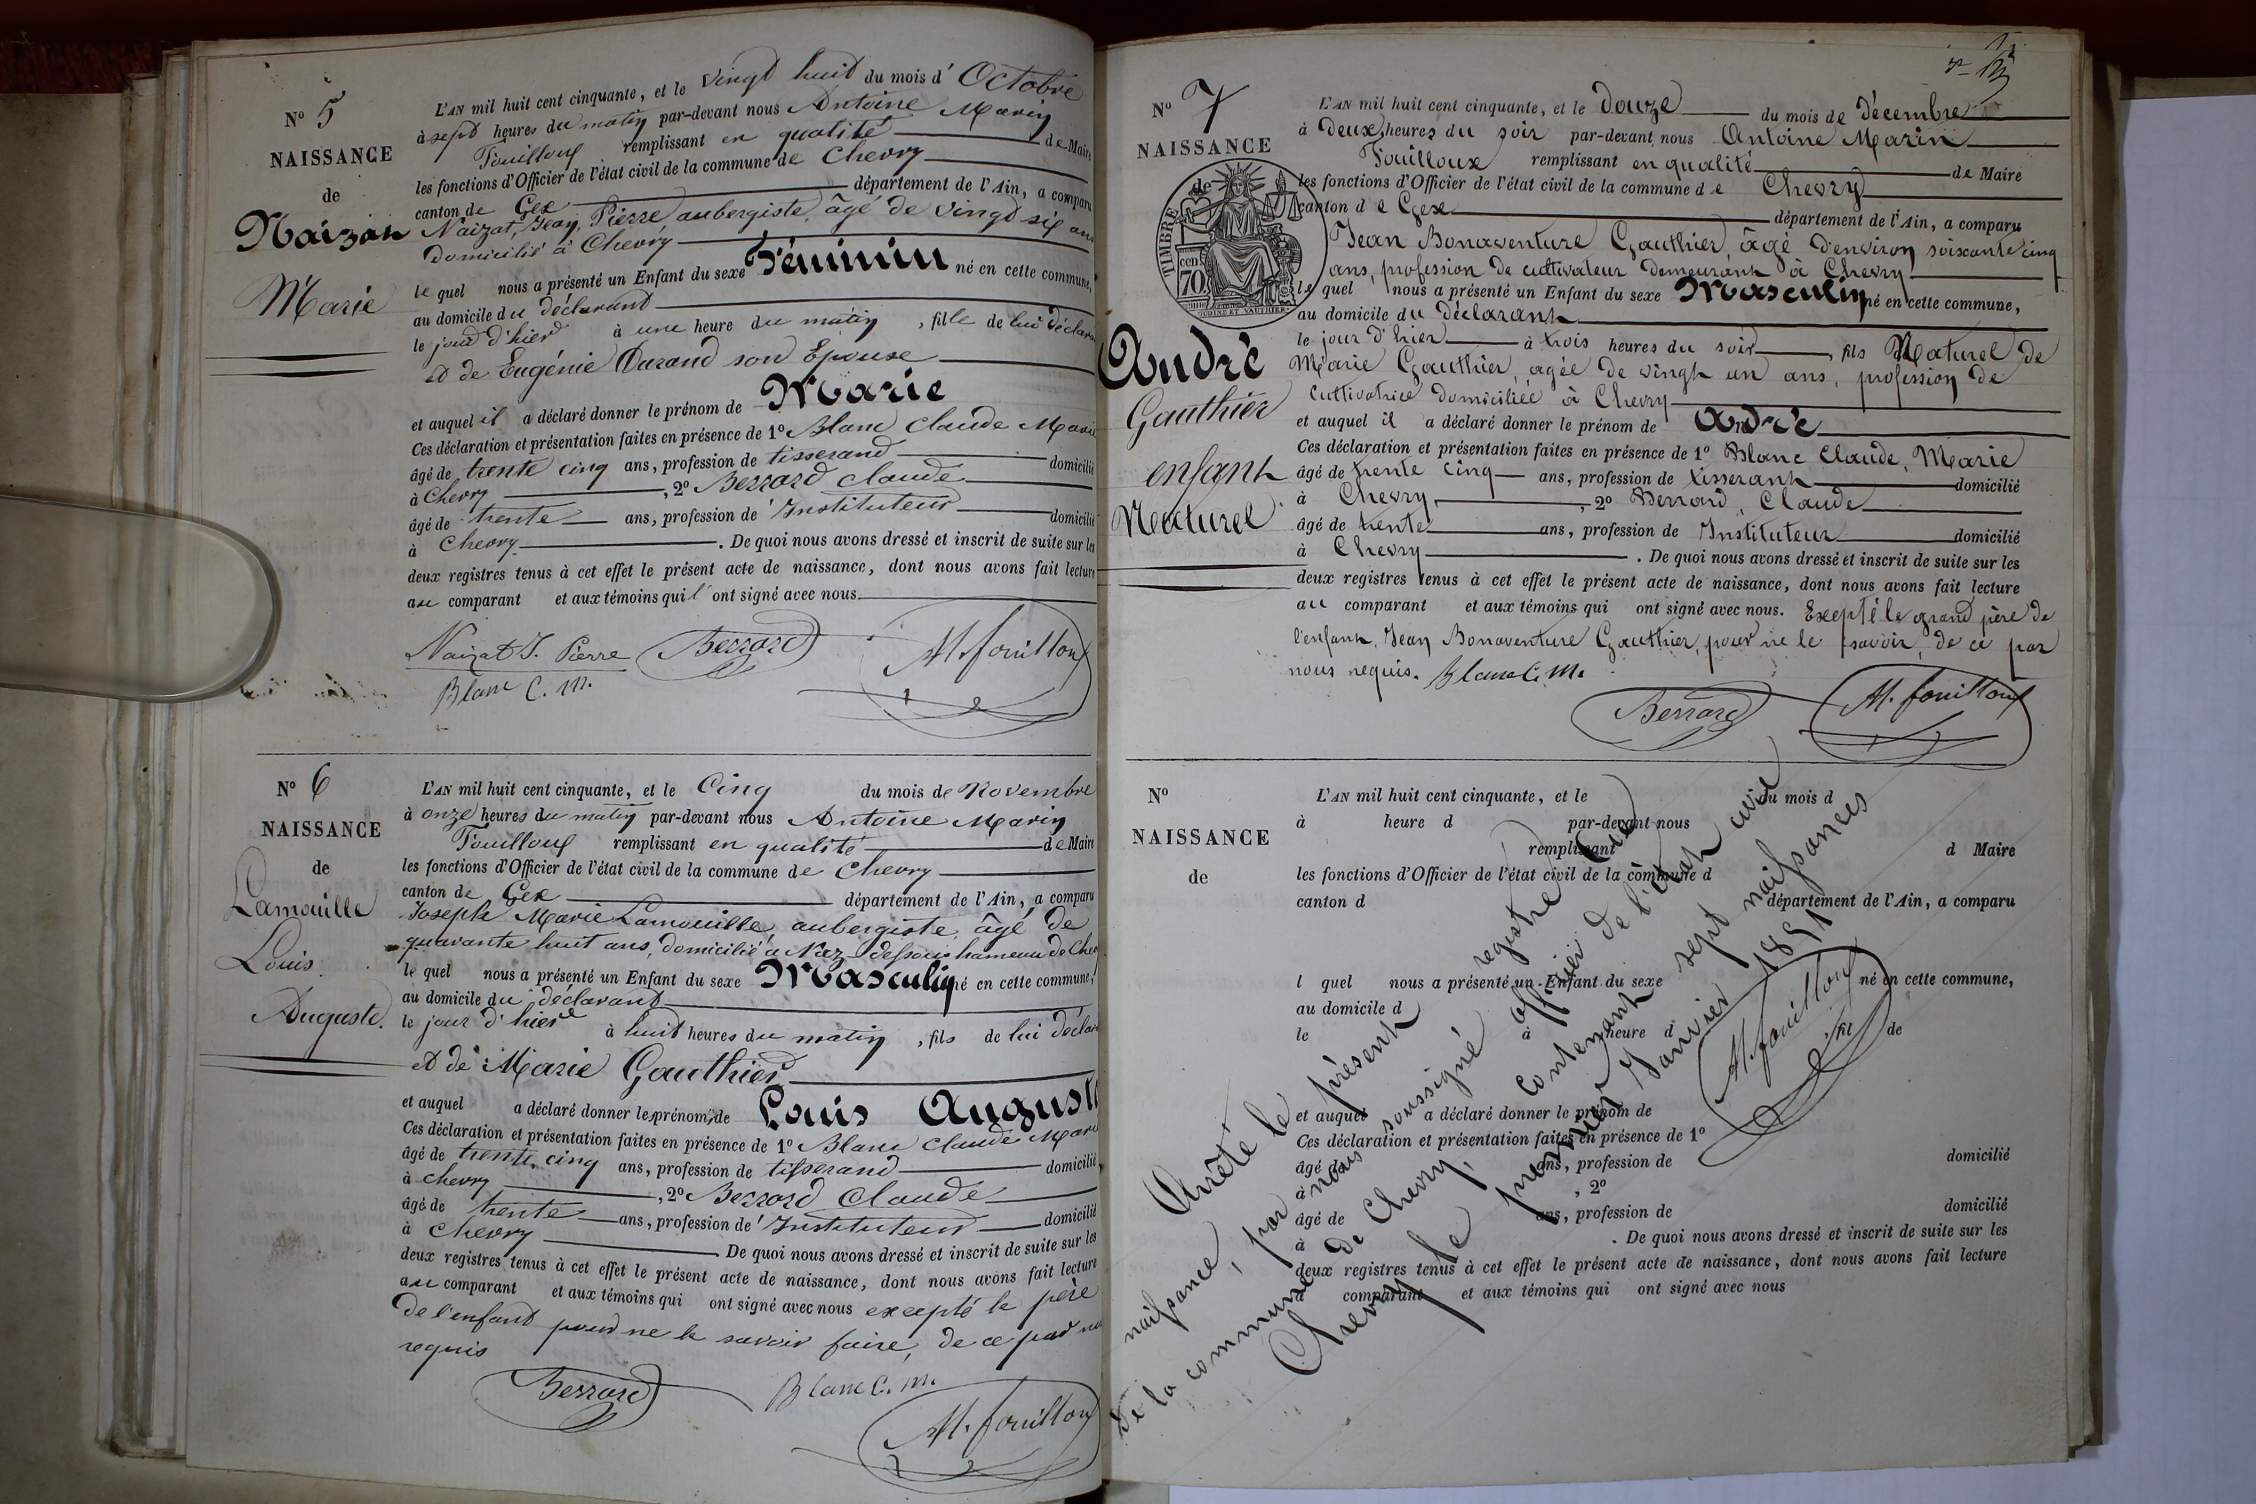 N° 5
NAISSANCE
de
Naizat
Marie
L'AN mil huit cent cinquante, et le vingt huit du mois d' Octobre
à sept heures du matin par-devant nous Antoine Marin
Fouilloux remplissant en qualité de Maire
les fonctions d'Officier de l'état civil de la commune de Chevry
canton de Gex département de l'Ain, a comparu
Naizat, Jean, Pierre aubergiste, âgé de vingt six ans
domicilié à Chevry
le quel nous a présenté un Enfant du sexe Féminin né en cette commune,
au domicile du déclarant
le jour d'hier à une heure du matin, fille de lui déclara
et de Eugénie Durand son Epouse
et auquel il a déclaré donner le prénom de Marie
Ces déclaration et présentation faites en présence de 1° Blanc Claude Marie
âgé de trente cinq ans, profession de tisserand domicilié
à Chevry, 2° Berrard Claude
âgé de trente ans, profession de Instituteur domicilié
à Chevry. De quoi nous avons dressé et inscrit de suite sur les
deux registres tenus à cet effet le présent acte de naissance, dont nous avons fait lecture
au comparant et aux témoins qui l'ont signé avec nous.
Naizat J. Pierre Berrard M. fouilloux
Blanc C. M.
N° 6
NAISSANCE
de
Lamouille
Louis
Auguste.
L'AN mil huit cent cinquante, et le Cinq du mois de Novembre
à onze heures du matin par-devant nous Antoine Marin
Fouilloux remplissant en qualité de Maire
les fonctions d'Officier de l'état civil de la commune de Chevry
canton de Gex département de l'Ain, a comparu
Joseph Marie Lamouille, aubergiste, âgé de
quarante huit ans, domicilié à Naz-dessous hameau de Chev
le quel nous a présenté un Enfant du sexe Masculin né en cette commune,
au domicile du déclarant
le jour d'hier à huit heures du matin, fils de lui déclar
et de Marie Gauthier
et auquel a déclaré donner les prénoms de Louis Auguste
Ces déclaration et présentation faites en présence de 1° Blanc Claude Marie
âgé de trente cinq ans, profession de tisserand domicilié
à Chevry, 2° Berrard Claude
âgé de trente ans, profession de Instituteur domicilié
à Chevry. De quoi nous avons dressé et inscrit de suite sur les
deux registres tenus à cet effet le présent acte de naissance, dont nous avons fait lecture
au comparant et aux témoins qui ont signé avec nous excepté le père
de l'enfant pour ne le savoir faire, de ce par no
requis
Berrard Blanc C. M.
M. fouilloux
N° 7
NAISSANCE
de
TIMBRE
cen. 70
André
Gauthier
enfant
Naturel
L'AN mil huit cent cinquante, et le douze du mois de Décembre
à Deux heures du soir par-devant nous Antoine Marin
Fouilloux remplissant en qualité de Maire
les fonctions d'Officier de l'état civil de la commune de Chevry
canton de Gex département de l'Ain, a comparu
Jean Bonaventure Gauthier, âgé d'environ soixante cinq
ans, profession de cultivateur demeurant à Chevry
le quel nous a présenté un Enfant du sexe Masculin né en cette commune,
au domicile du déclarant
le jour d'hier à trois heures du soir, fils Naturel de
Marie Gauthier, agée de vingt un ans, profession de
cultivatrice domiciliée à Chevry
et auquel il a déclaré donner le prénom de André
Ces déclaration et présentation faites en présence de 1° Blanc Claude, Marie
âgé de trente cinq ans, profession de tisserant domicilié
à Chevry, 2° Berrard, Claude
âgé de trente ans, profession de Instituteur domicilié
à Chevry. De quoi nous avons dressé et inscrit de suite sur les
deux registres tenus à cet effet le présent acte de naissance, dont nous avons fait lecture
au comparant et aux témoins qui ont signé avec nous. Excepté le grand père de
l'enfant, Jean Bonaventure Gauthier, pour ne le savoir, de ce par
nous requis. Blanc C. M.
Berrard M. fouilloux
N°
NAISSANCE
de
L'AN mil huit cent cinquante, et le du mois d
à heure d par-devant nous
remplissant d Maire
les fonctions d'Officier de l'état civil de la commune d
canton d département de l'Ain, a comparu
l quel nous a présenté un Enfant du sexe né en cette commune,
au domicile d
le à heure d , fil de
et auquel a déclaré donner le prénom de
Ces déclaration et présentation faites en présence de 1°
âgé de ans, profession de domicilié
à , 2°
âgé de ans, profession de domicilié
à . De quoi nous avons dressé et inscrit de suite sur les
deux registres tenus à cet effet le présent acte de naissance, dont nous avons fait lecture
a comparant et aux témoins qui ont signé avec nous
Arrêté le présent registre
naissance, par nous soussigné officier de l'état civil
de la commune de Chevry, contenant sept naissances
Chevry le premier Janvier 1851
M. fouilloux